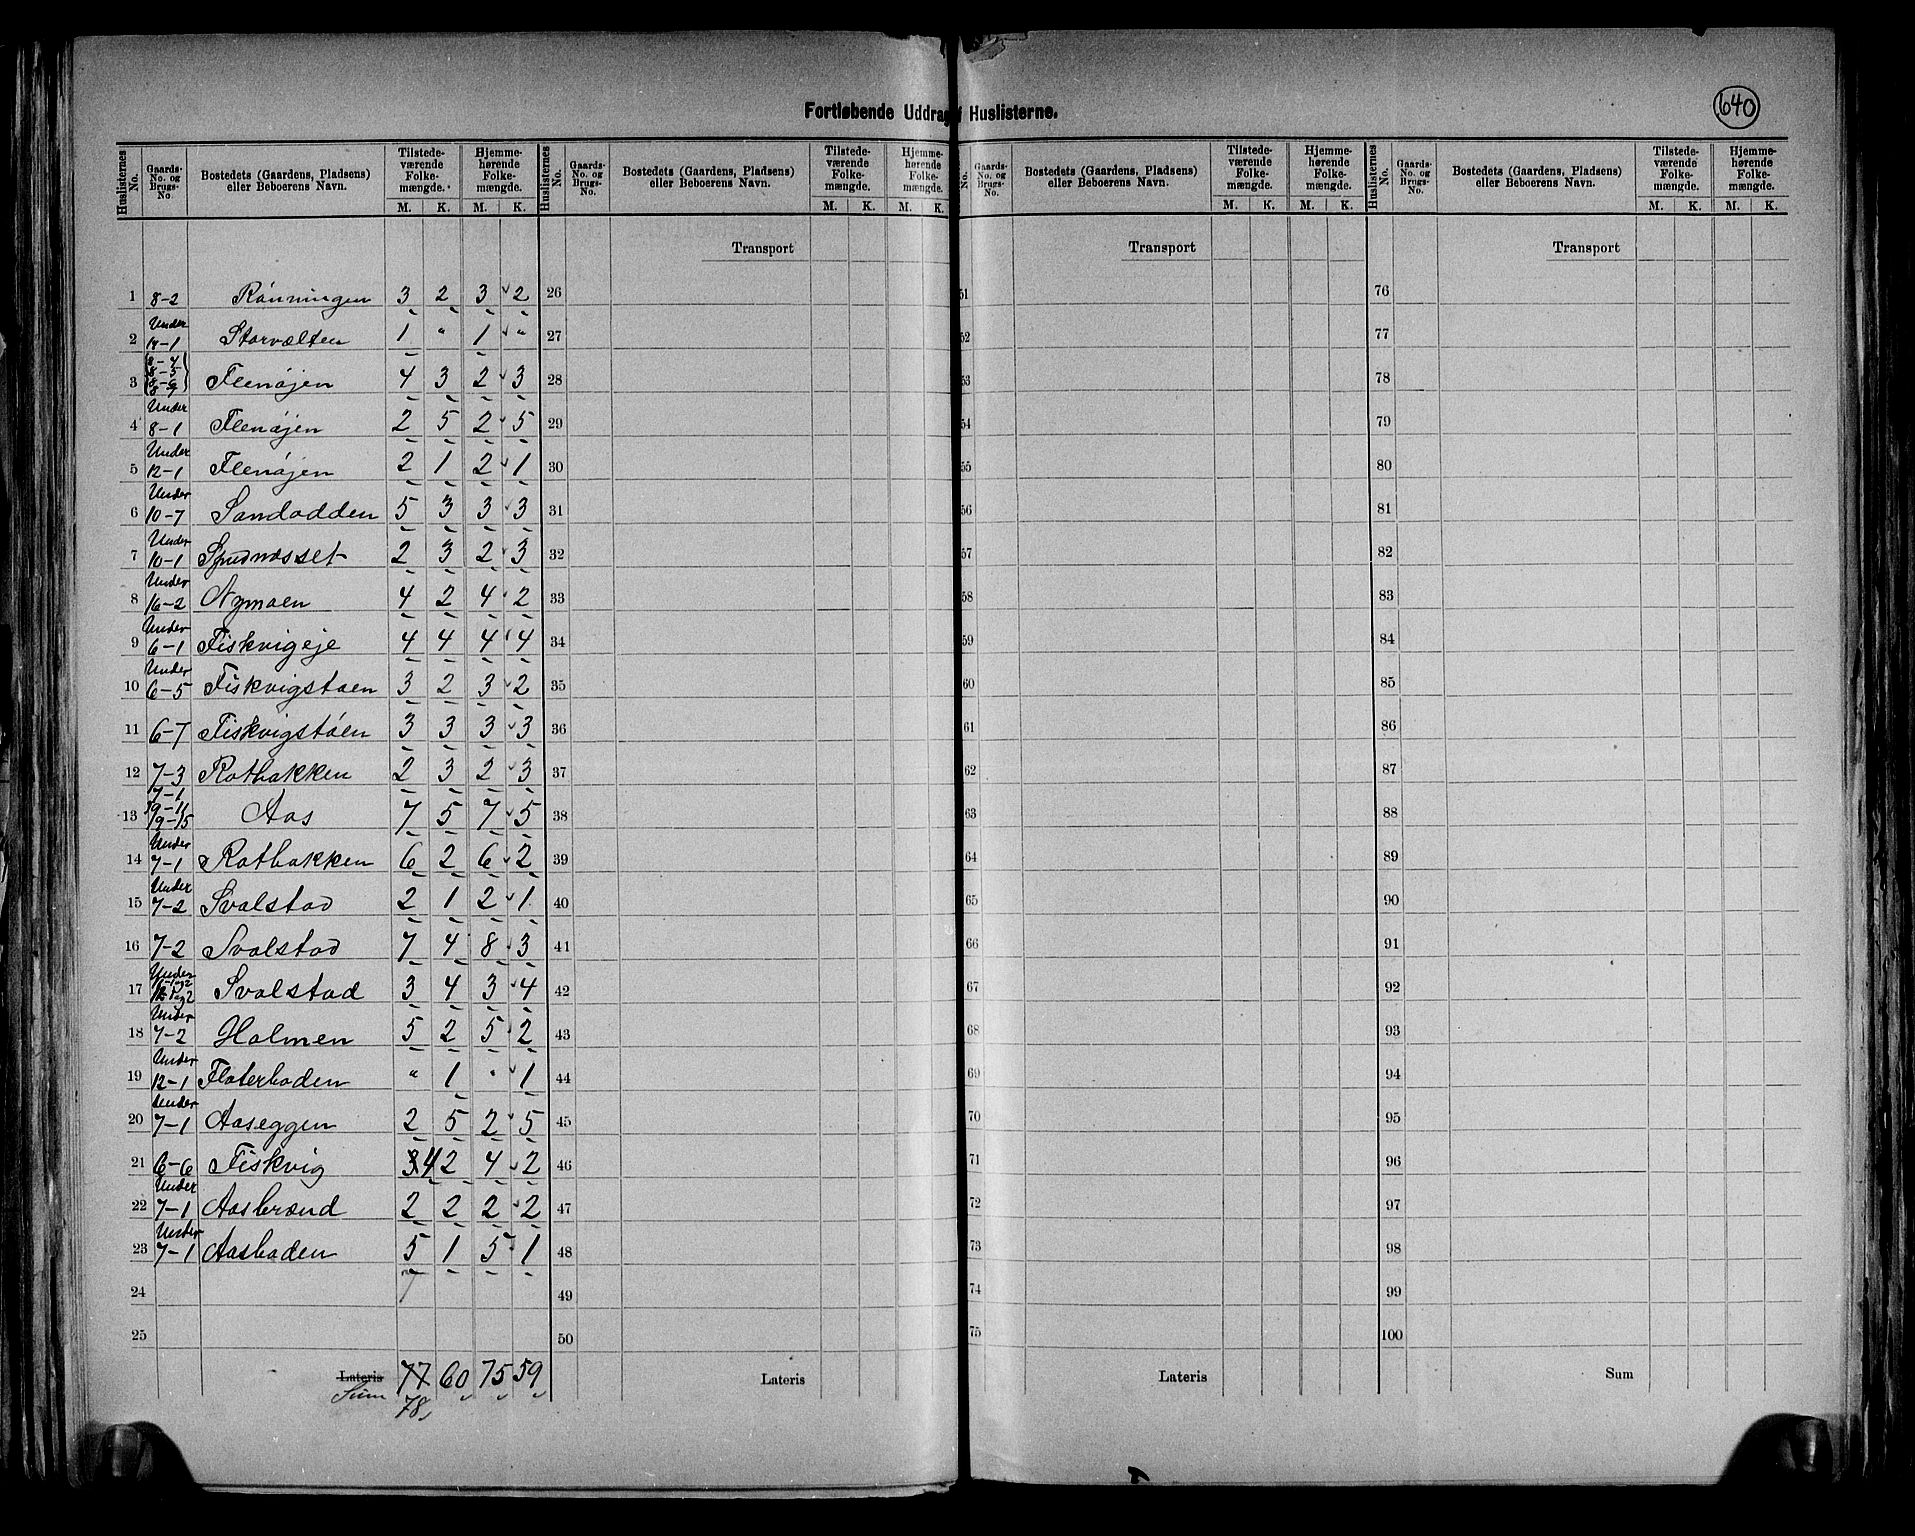 640
Fortløbende Uddrag af Huslisterne.
Huslisternes No. | Gaards-No. og Brugs-No. | Bostedets (Gaardens, Pladsens) eller Beboerens Navn. | Tilstede-værende Folke-mængde. M. K. | Hjemme-hørende Folke-mængde. M. K.
Transport Transport Transport
1 8-2 Rønningen 3 2 3 2
2 Under 14-1 Storvælten 1 " 1 "
3 8-4 8-5 8-6 8-7 Flenøjen 4 3 2 3
4 Under 8-1 Flenøjen 2 5 2 5
5 Under 12-1 Flenøjen 2 1 2 1
6 Under 10-7 Sandodden 5 3 3 3
7 Under 10-1 Spudnæsset 2 3 2 3
8 Under 16-2 Nymoen 4 2 4 2
9 Under 6-1 Fiskvigeje 4 4 4 4
10 Under 6-5 Fiskvigstøen 3 2 3 2
11 6-7 Fiskvigstøen 3 3 3 3
12 7-3 Røtbakken 2 3 2 3
13 7-1 19-11 19-15 Aas 7 5 7 5
14 Under 7-1 Rotbakken 6 2 6 2
15 Under 7-2 Svalstad 2 1 2 1
16 7-2 Svalstad 7 4 8 3
17 Under Svalstad 3 4 3 4
18 Under 7-2 Holmen 5 2 5 2
19 Under 12-1 Floterboden " 1 " 1
20 Under 7-1 Aaseggen 2 5 2 5
21 6-6 Fiskvig 3 4 2 4 2
22 Under 7-1 Aasbrænd 2 2 2 2
23 Under 7-1 Aasboden 5 1 5 1
24
25
Lateris 77 60 75 59
Sum 78
26
27
28
29
30
31
32
33
34
35
36
37
38
39
40
41
42
43
44
45
46
47
48
49
50
Lateris
51
52
53
54
55
56
57
58
59
60
61
62
63
64
65
66
67
68
69
70
71
72
73
74
75
Lateris
76
77
78
79
80
81
82
83
84
85
86
87
88
89
90
91
92
93
94
95
96
97
98
99
100
Sum